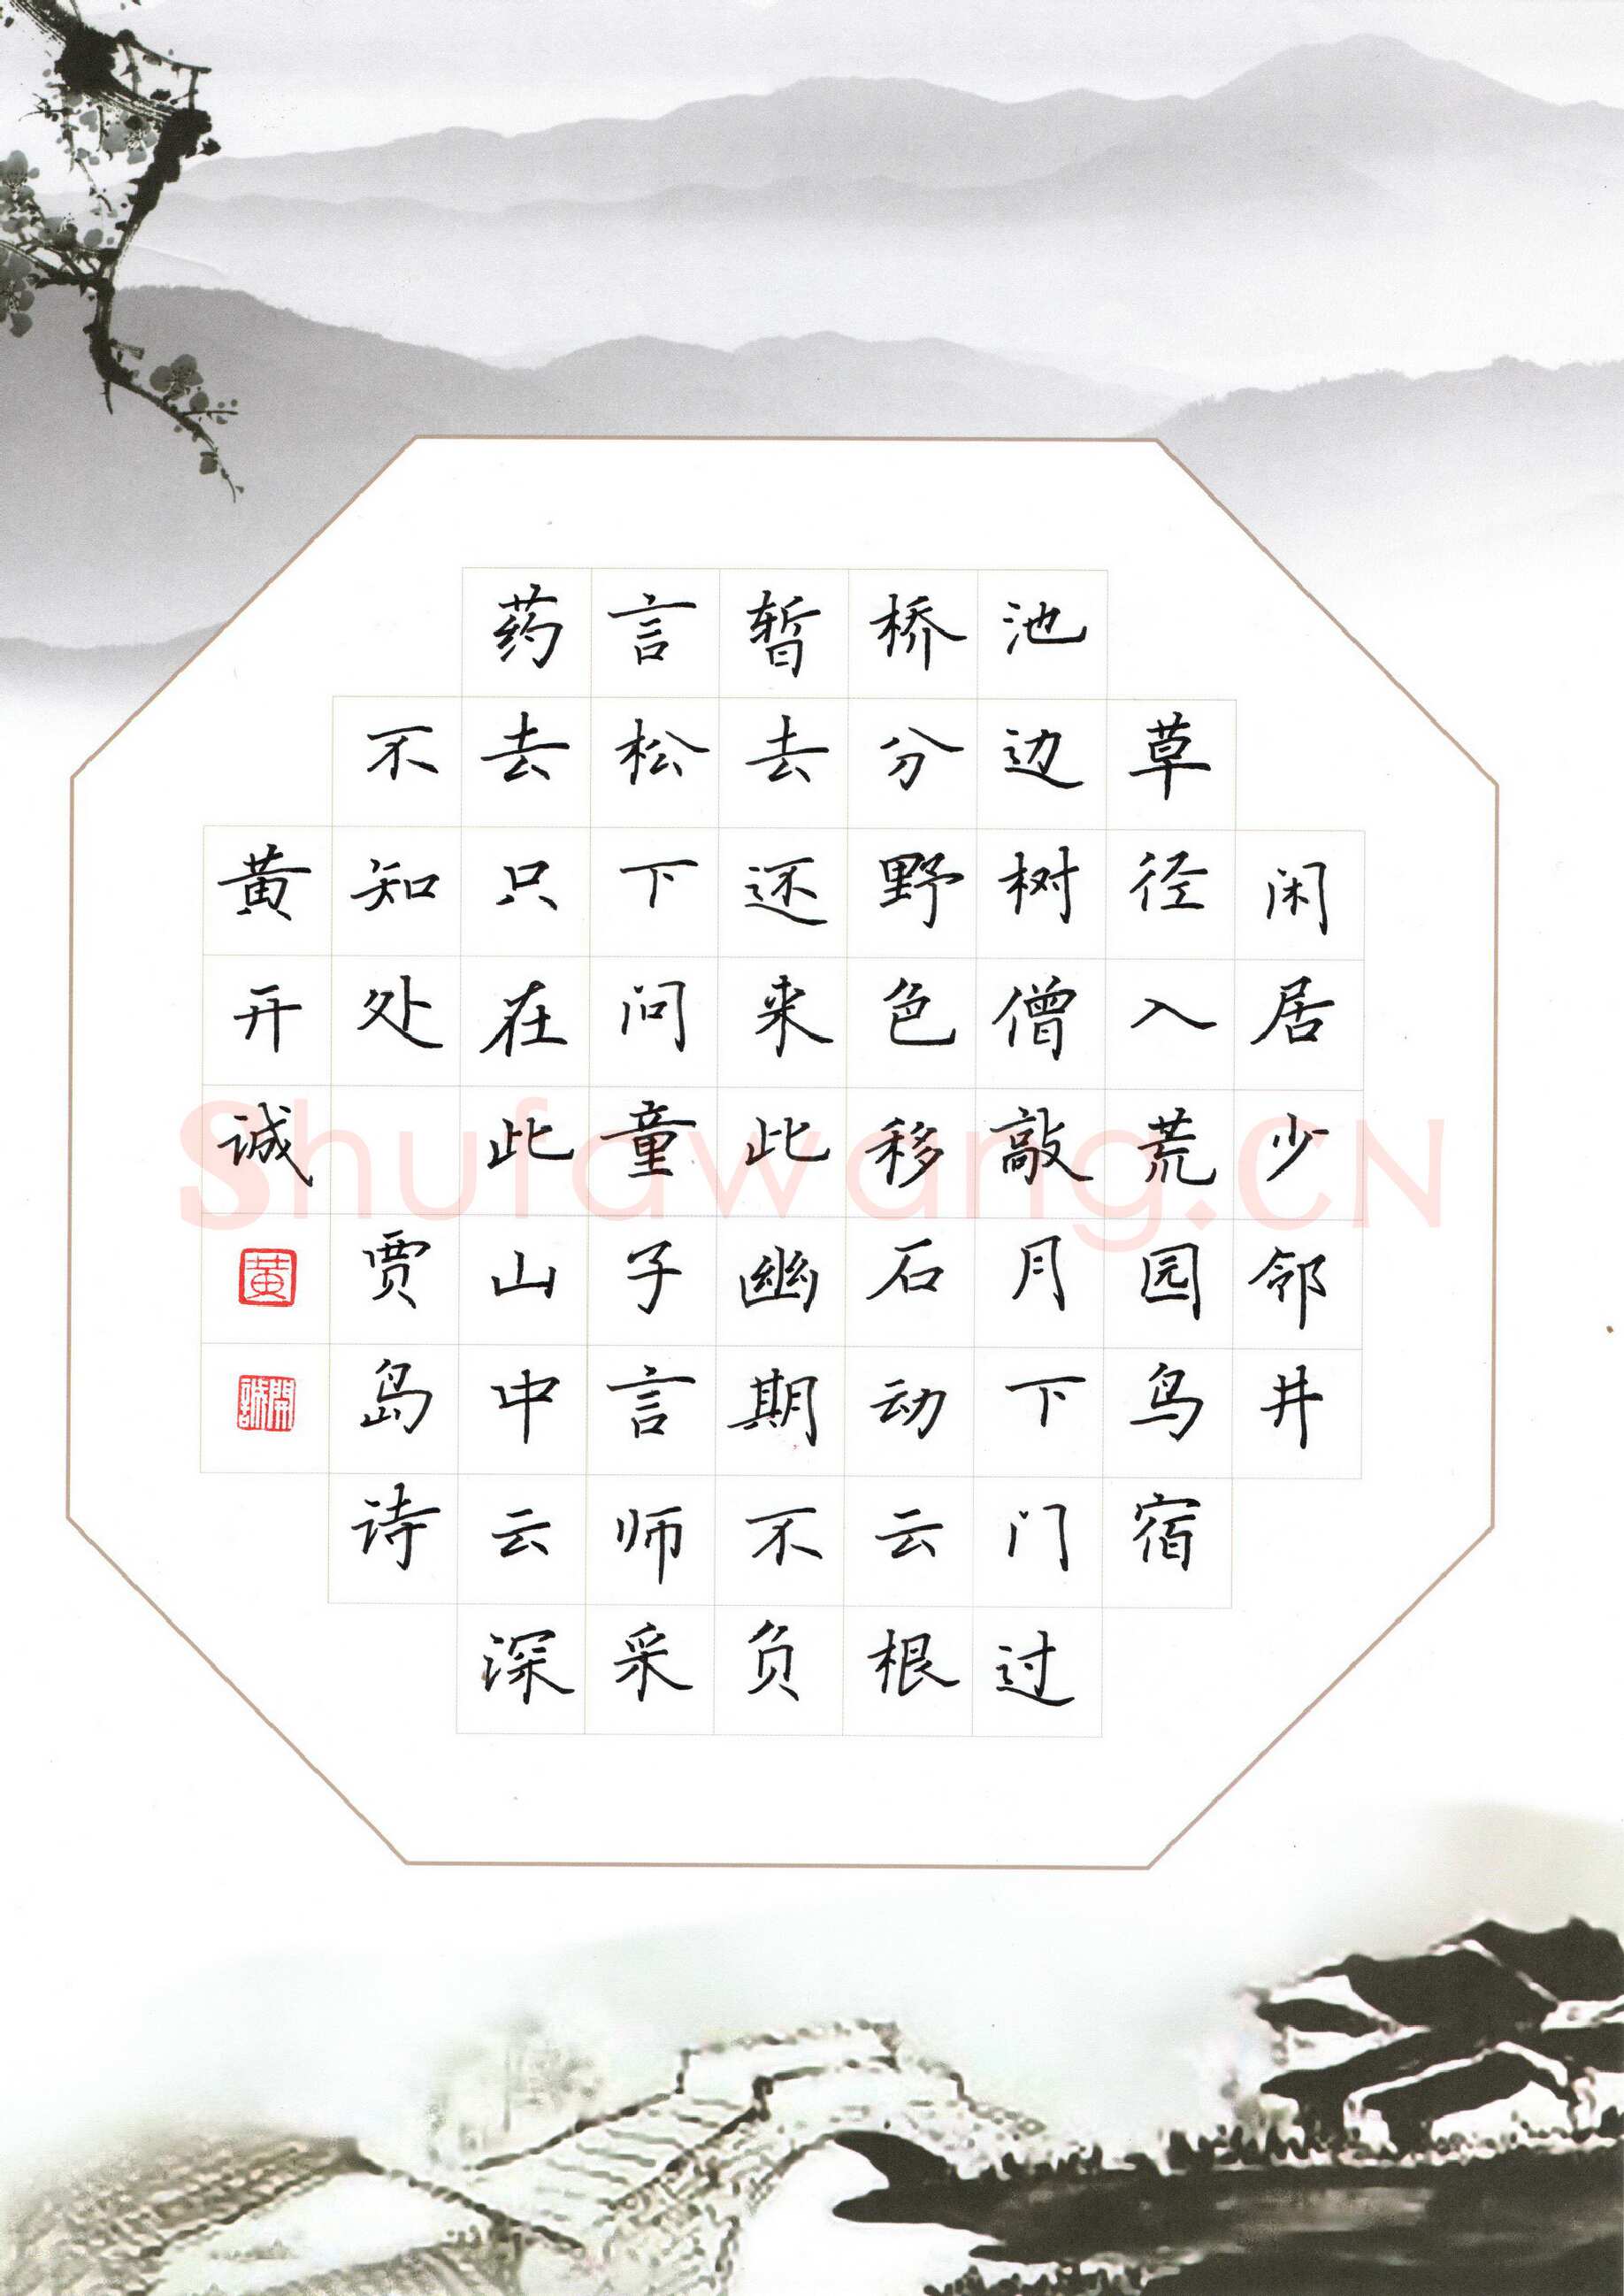 闲居少邻井
草径入荒园鸟宿
池边树僧敲月下门过
桥分野色移石动云根
暂去还来此幽期不负
言松下问童子言师采
药去只在此山中云深
不知处 贾岛诗
黄开诚
黄
開誠
Shufawang.CN